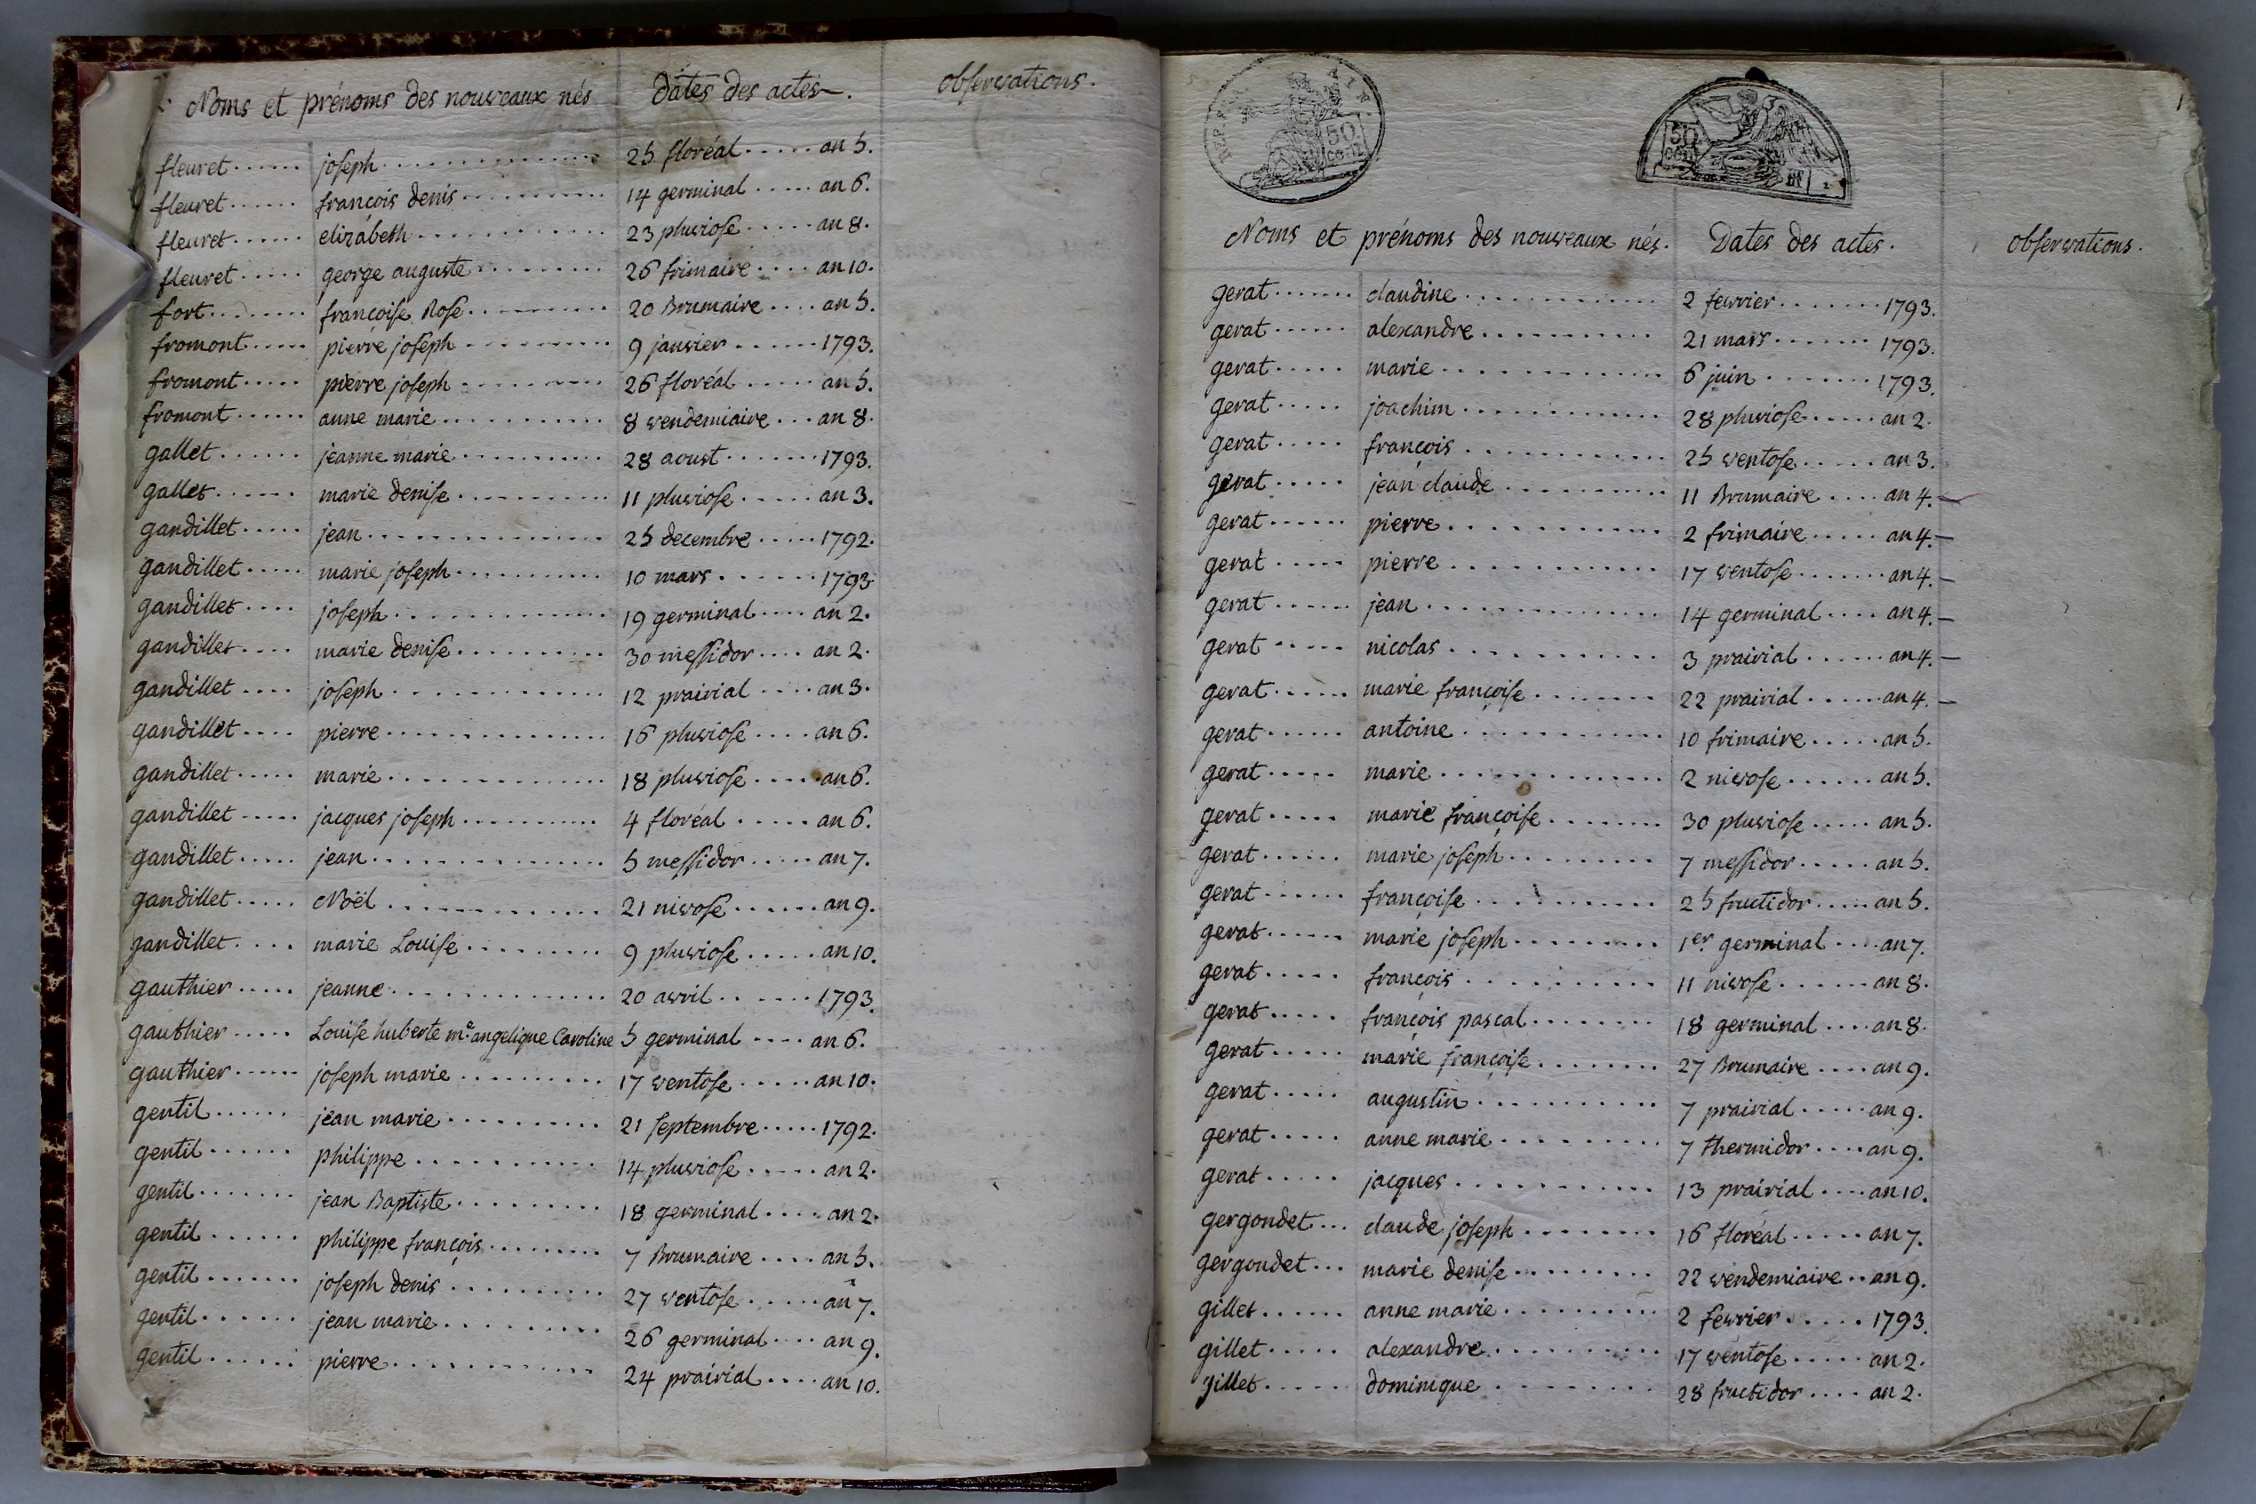 Noms et prénoms des nouveaux nés Dates des actes. observations.
fleuret joseph 25 floréal an 5.
fleuret françois denis 14 germinal an 6.
fleuret elizabeth 23 pluviose an 8.
fleuret george auguste 26 frimaire an 10.
fort françoise Rose 20 Brumaire an 5.
fromont pierre joseph 9 janvier 1793.
fromont pierre joseph 26 floréal an 5.
fromont anne marie 8 vendemiaire an 8.
gallet jeanne marie 28 aoust 1793.
gallet marie denise 11 pluviose an 3.
gandillet jean 25 decembre 1792.
gandillet marie joseph 10 mars 1793.
gandillet joseph 19 germinal an 2.
gandillet marie denise 30 messidor an 2.
gandillet joseph 12 prairial an 3.
gandillet pierre 16 pluviose an 6.
gandillet marie 18 pluviose an 6.
gandillet jacques joseph 4 floréal an 6.
gandillet jean 5 messidor an 7.
gandillet Noël 21 nivose an 9.
gandillet marie Louise 9 pluviose an 10.
gauthier jeanne 20 avril 1793.
gauthier Louise huberte me angelique Caroline 5 germinal an 6.
gauthier joseph marie 17 ventose an 10.
gentil jean marie 21 septembre 1792.
gentil philippe 14 pluviose an 2.
gentil jean Baptiste 18 germinal an 2.
gentil philippe françois 7 Brumaire an 5.
gentil joseph denis 27 ventose an 7.
gentil jean marie 26 germinal an 9.
gentil pierre 24 prairial an 10.
50 cent
50 cen
Noms et prénoms des nouveaux nés. Dates des actes. observations.
gerat claudine 2 fevrier 1793.
gerat alexandre 21 mars 1793.
gerat marie 6 juin 1793.
gerat joachim 28 pluviose an 2.
gerat françois 25 ventose an 3.
gerat jean claude 11 Brumaire an 4.
gerat pierre 2 frimaire an 4.
gerat pierre 17 ventose an 4.
gerat jean 14 germinal an 4.
gerat nicolas 3 prairial an 4.
gerat marie françoise 22 prairial an 4.
gerat antoine 10 frimaire an 5.
gerat marie 2 nivose an 5.
gerat marie françoise 30 pluviose an 5.
gerat marie joseph 7 messidor an 5.
gerat françoise 25 fructidor an 5.
gerat marie joseph 1er germinal an 7.
gerat françois 11 nivose an 8.
gerat françois pascal 18 germinal an 8.
gerat marie françoise 27 Brumaire an 9.
gerat augustin 7 prairial an 9.
gerat anne marie 7 thermidor an 9.
gerat jacques 13 prairial an 10.
gergondet claude joseph 16 floréal an 7.
gergondet marie denise 22 vendemiaire an 9.
gillet anne marie 2 fevrier 1793.
gillet alexandre 17 ventose an 2.
gillet dominique 28 fructidor an 2.